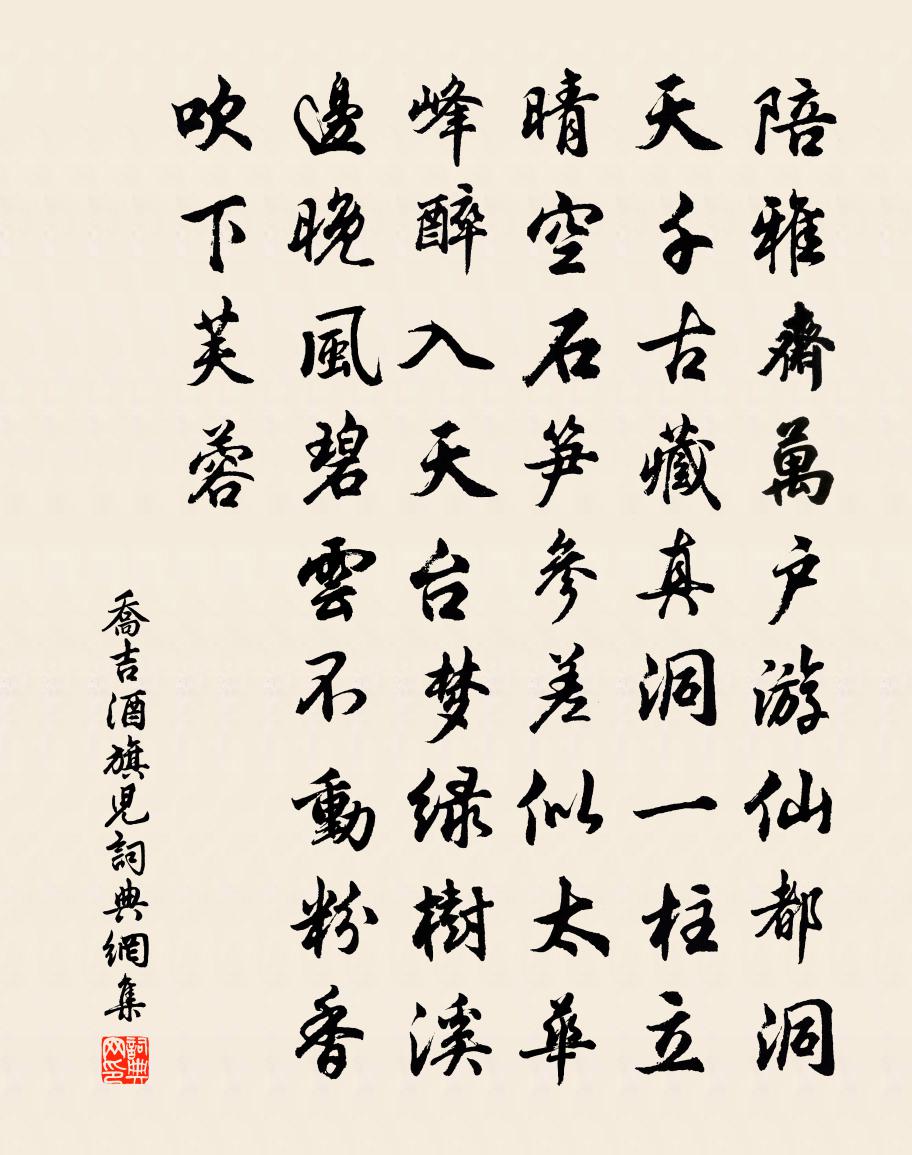 陪雅齋萬户游仙都洞
天千古藏真洞一柱立
晴空石笋參差似太華
峰醉入天台梦緑樹溪
邊晚風碧雲不動粉香
吹下芙蓉
喬吉酒旗兒詞典網集
詞典网印